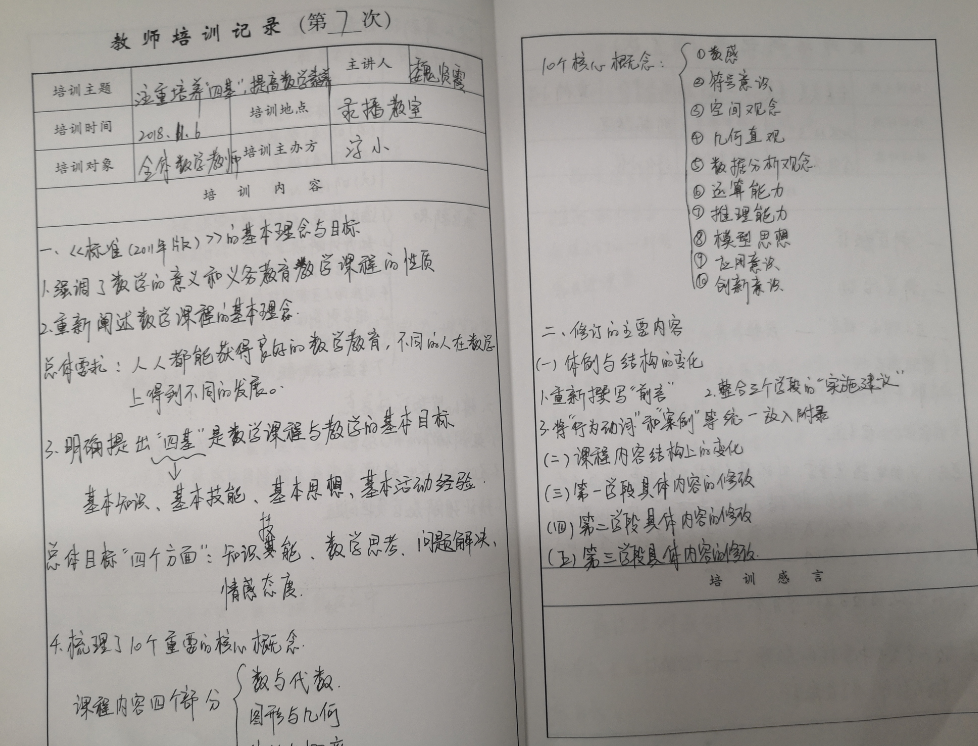 教师培训记录（第 7 次）
培训主题 注重培养"四基",提高数学素养 主讲人
培训时间 2018.11.6 培训地点 录播教室
培训对象 全体数学教师 培训主办方 小
培训内容
一、《标准(2011年版)》的基本理念与目标
1.强调了数学的意义和义务教育数学课程的性质
2.重新阐述数学课程的基本理念.
总体要求：人人都能获得良好的数学教育，不同的人在数学
上得到不同的发展。
3.明确提出"四基"是数学课程与教学的基本目标
基本知识、基本技能、基本思想、基本活动经验.
总体目标"四个方面"：知识技能、数学思考、问题解决、
情感态度.
4.梳理了10个重要的核心概念.
课程内容四个部分
数与代数.
图形与几何
10个核心概念：
①数感
②符号意识
③空间观念
④几何直观
⑤数据分析观念
⑥运算能力
⑦推理能力
⑧模型思想
⑨应用意识
⑩创新意识
二、修订的主要内容
(一)体例与结构的变化
1.重新撰写"前言" 2.整合三个学段的"实施建议"
3.将"行为动词"和"案例"等统一放入附录
(二)课程内容结构上的变化
(三)第一学段具体内容的修改
(四)第二学段具体内容的修改
(五)第三学段具体内容的修改.
培训感言